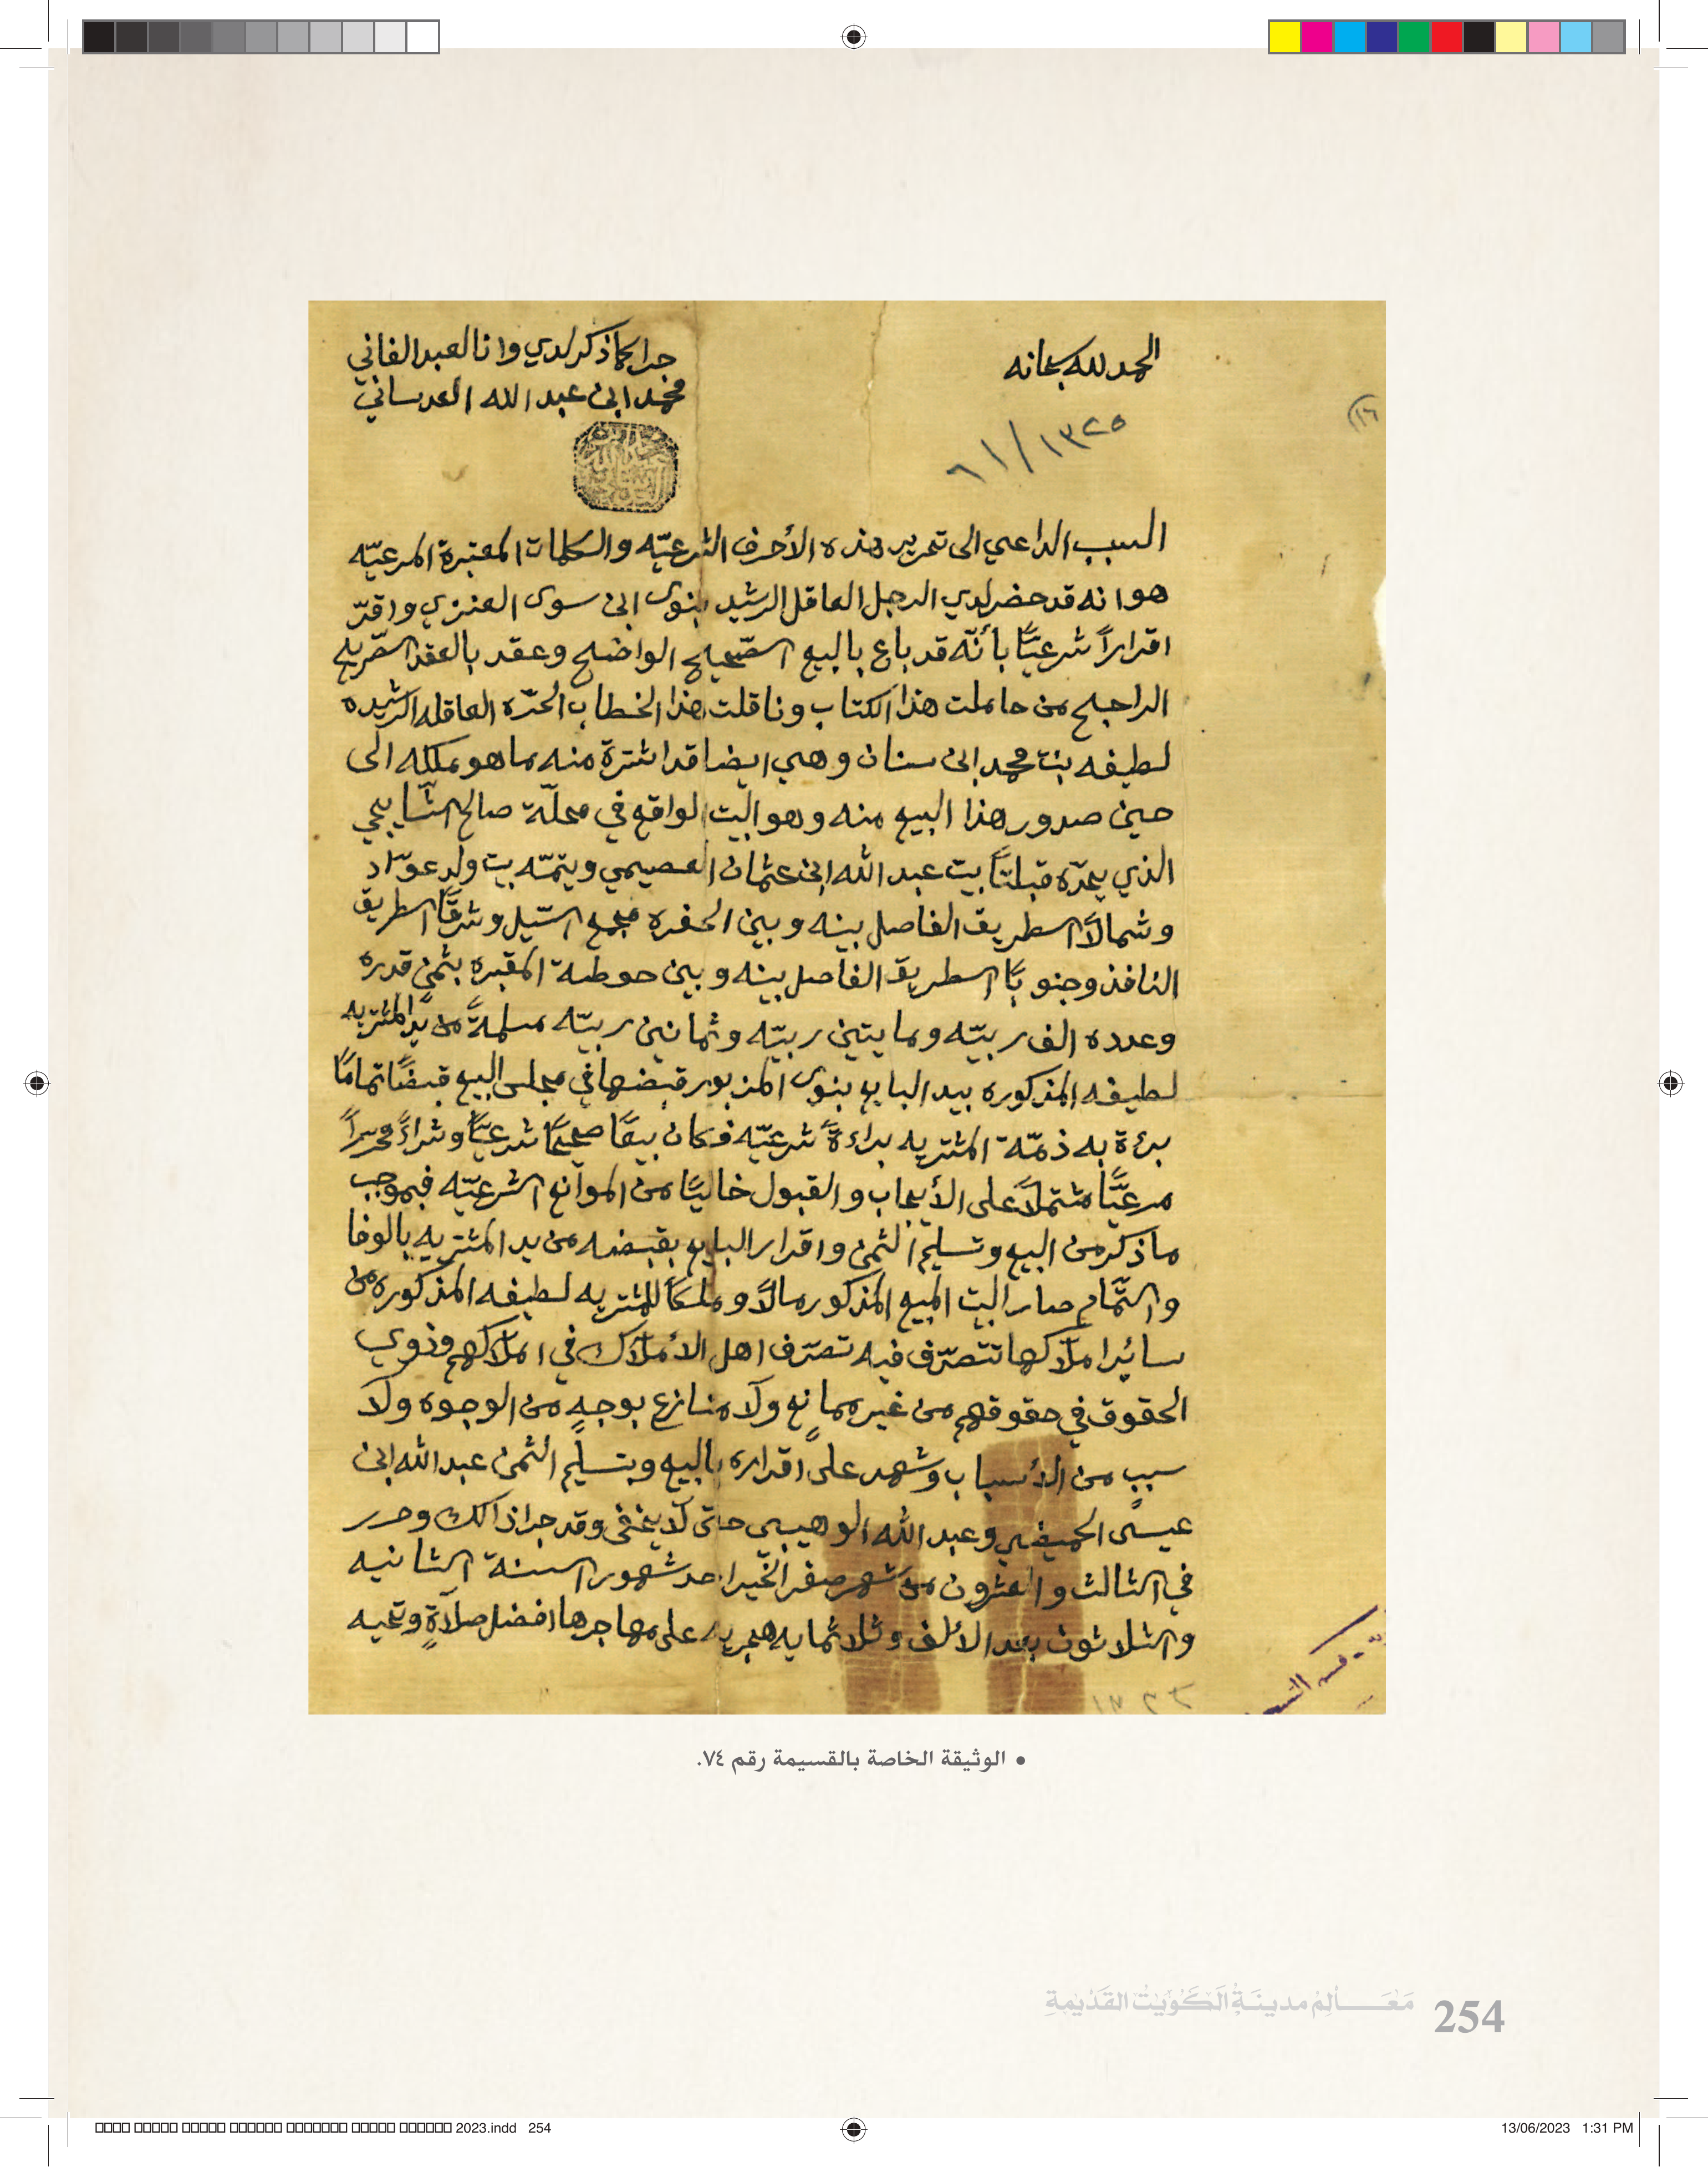 الحمد لله سبحانه
جرا كما ذكر لدي وانا العبد الفاني
محمد ابن عبد الله العدساني
١٣٢٥/٦١
(١٦
السبب الداعي الى تحرير هذه الأحرف الشرعيّه والكلمات المعتبرة المرعيّه
هو انه قد حضر لدي الرجل العاقل الرشيد بنوى ابن سوى العنزي واقرّ
اقراراً شرعيّاً بأنّه قد باع بالبيع الصّحيح الواضح وعقد بالعقد الصّريح
الراجح من حاملت هذا الكتاب وناقلت هذا الخطاب الحرّه العاقله الرّشيده
لطيفه بنت محمد ابن سنان وهي ايضا قد اشترة منه ما هو ملكه الى
حين صدور هذا البيع منه وهو البيت الواقع في محلّة صالح الشّايجي
الذي يحدّه قبلتاً بيت عبد الله ابن عثمان العصيمي ويتمّه بيت ولد عوّاد
وشمالاً الطريق الفاصل بينه وبين الحفره مجمع السّيل وشرقاً الطريق
النافذ وجنوباً الطريق الفاصل بينه وبين حوطة المقبره بثمن قدره
وعدده الف ربيّه ومايتين ربيّه وثمانين ربيّه مسلمةً من يد المشتريه
لطيفه المذكوره بيد البايع بنوى المزبور قبضها في مجلس البيع قبضاً تماماً
برءة به ذمّة المشتريه براءةً شرعيّه فكان بيعاً صحيحاً شرعيّاً وشراءً محرراً
مرعيّاً مشتملاً على الأيجاب والقبول خالياً من الموانع الشرعيّه فبموجب
ما ذكر من البيع وتسليم الثمن واقرار البايع بقبضه من يد المشتريه بالوفا
والتّمام صار البيت المبيع المذكور مالاً وملكاً للمشتريه لطيفه المذكوره من
سائر املاكها تتصرّف فيه تصرّف اهل الأملاك في املاكهم وذوي
الحقوق في حقوقهم من غير ممانع ولا منازع بوجهٍ من الوجوه ولا
سببٍ من الأسباب وشهد على اقراره بالبيع وبتسليم الثمن عبد الله ابن
عيسى الحميضي وعبد الله الوهيبي حتى لا يخفى وقد جرا ذالك وحرر
في الثالث والعشرون من شهر صفر الخير احد شهور السنة الثانيه
والثلاثون بعد الألف وثلاثمايه هجريه على مهاجرها افضل صلاةٍ وتحيه
• الوثيقة الخاصة بالقسيمة رقم ٧٤.
مَعَالِمُ مدينَةِ الكُوَيْتِ القَدْيمَةِ 254
2023.indd 254
13/06/2023 1:31 PM